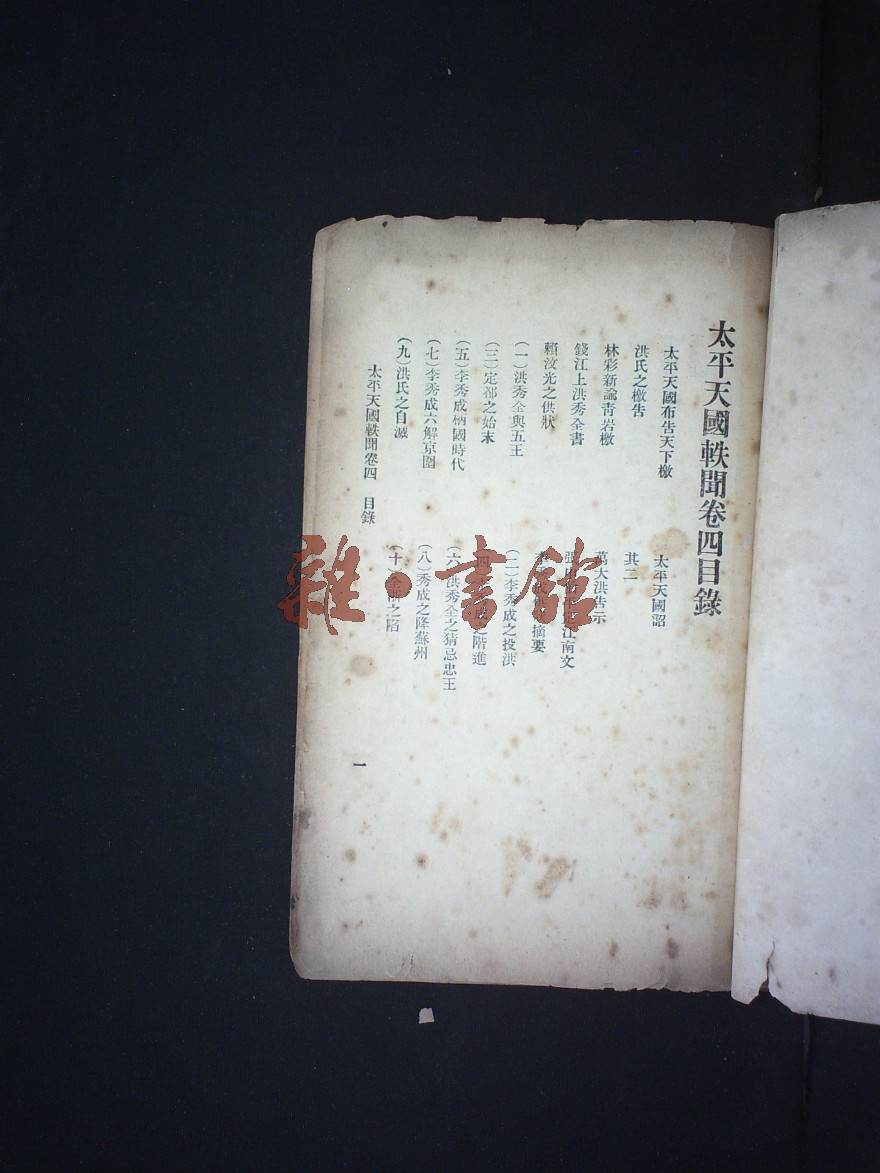 太平天國軼聞卷四目錄
太平天國布告天下檄　太平天國詔
洪氏之檄告　其二
林彩新諭青岩檄　萬大洪告示
錢江上洪秀全書　張江南文
賴汶光之供狀　摘要
(一)洪秀全與五王　(二)李秀成之投洪
(三)定都之始末　(四)之階進
(五)李秀成柄國時代　(六)洪秀全之猜忌忠王
(七)李秀成六解京圍　(八)秀成之降蘇州
(九)洪氏之自滅　(十)全浙之陷
太平天國軼聞卷四　目錄　一
雜·書館